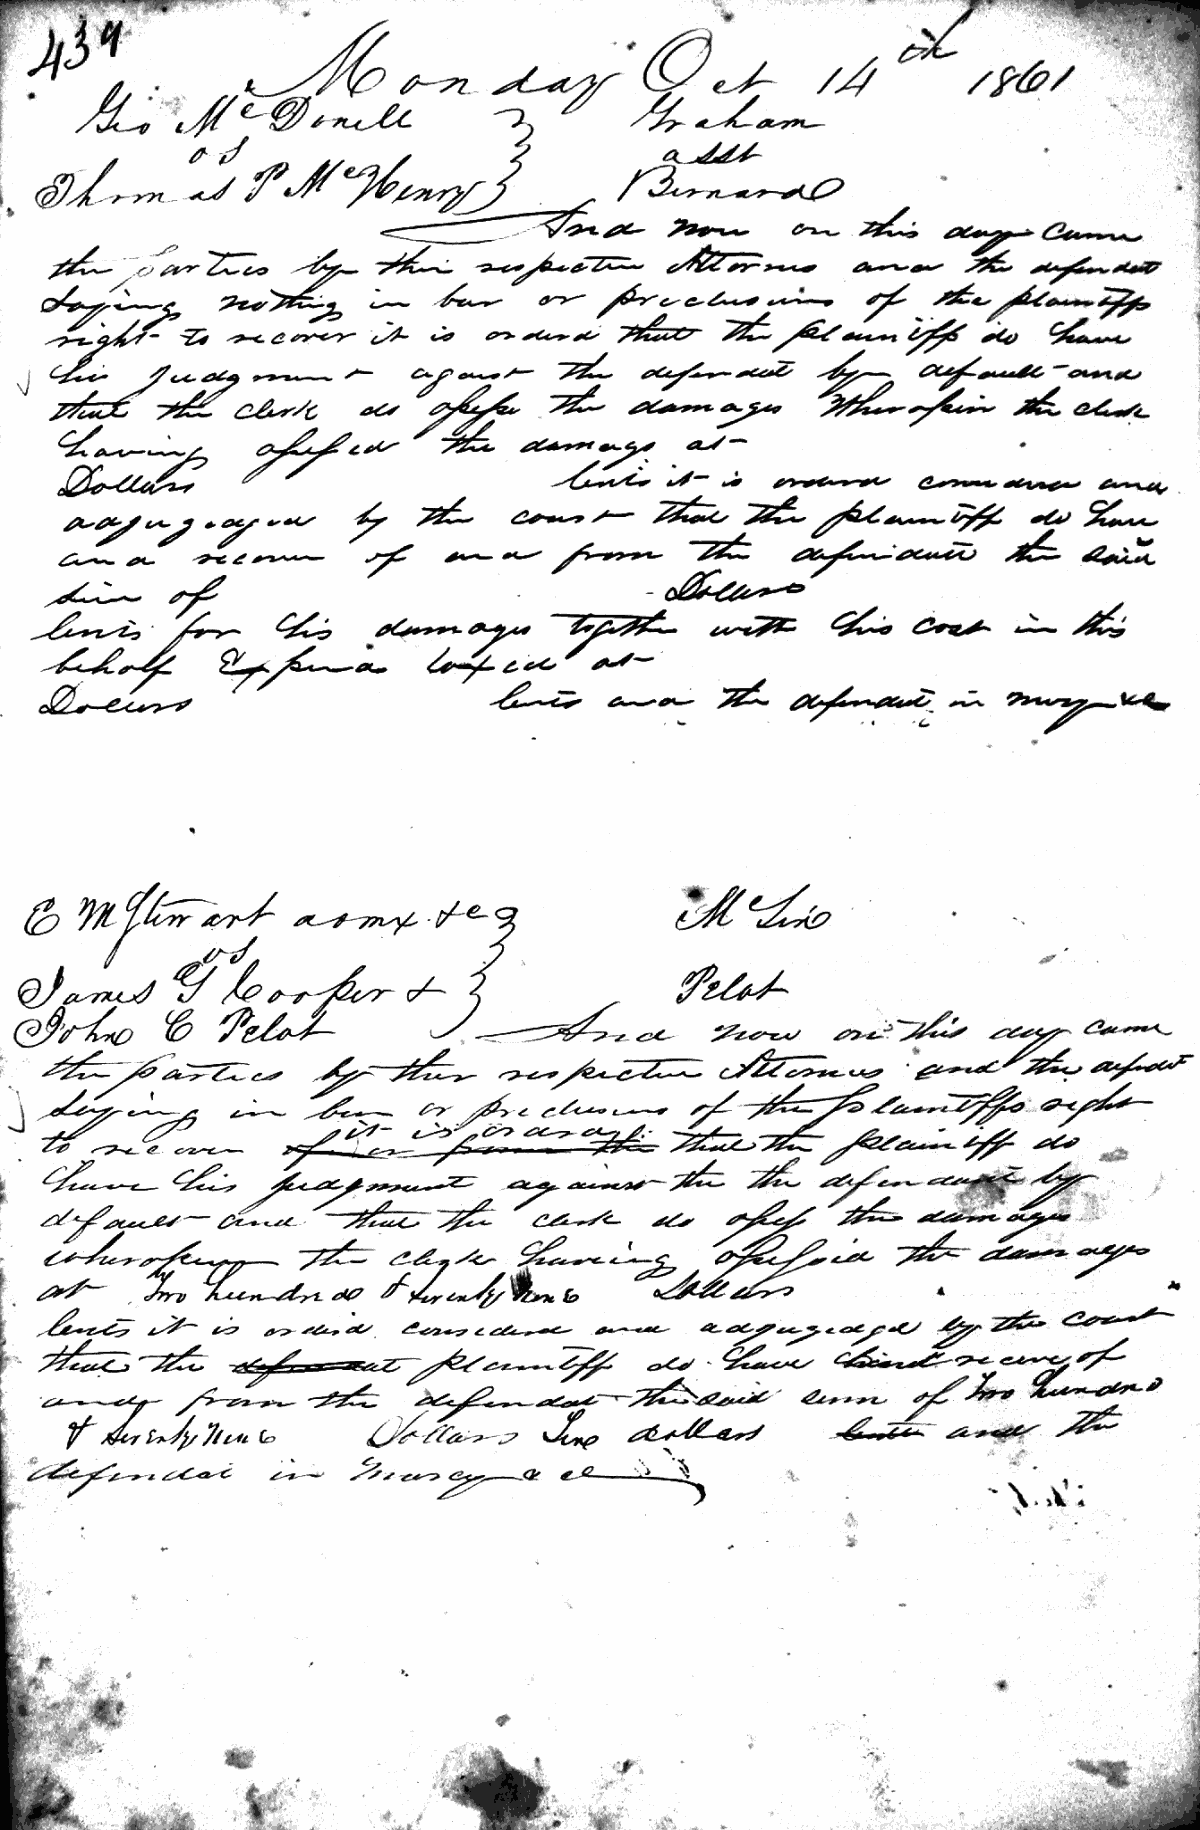 439
Monday Oct 14th 1861
Geo McDonell } Graham
vs } asst
Thomas P McHenry } Bernard
And now on this day came
the parties by their respective Attornies and the defendat
saying nothing in bar or preclusions of the plaintiffs
right to recover it is orderd that the plaintiff do have
his Judgment against the defendat by default and
that the clerk do assess the damages Wherupon the clerk
having assessed the damage at
Dollars Cents it is orderd considerd and
adjugedged by the court that the plaintiff do have
and recover of and from the defendant the said
sum of Dollars
Cents for his damages together with his cost in this
behalf Expended taxed at
Dollars Cents and the defendat in mercy &c
E M Stewart admx &c } McLin
vs
James G Cooper & } Pelot
John C Pelot And now on this day came
the parties by ther respective Attornies and the defendat
saying in bar or preclusions of the plaintiffs right
it is orderd
to recover of or from the that the plaintiff do
have his judgment against the the defendant by
default and that the clerk do assess the damages
wherupon the clerk having assessed the damages
at Two hundred & seventy Nine Dollars
Cents it is orderd considerd and adjugedged by the court
that the plaintiff do have recover of
and from the defendat the said sum of Two hundrd
& seventy Nine Dollars dollars cents and the
defendat in mercy &c